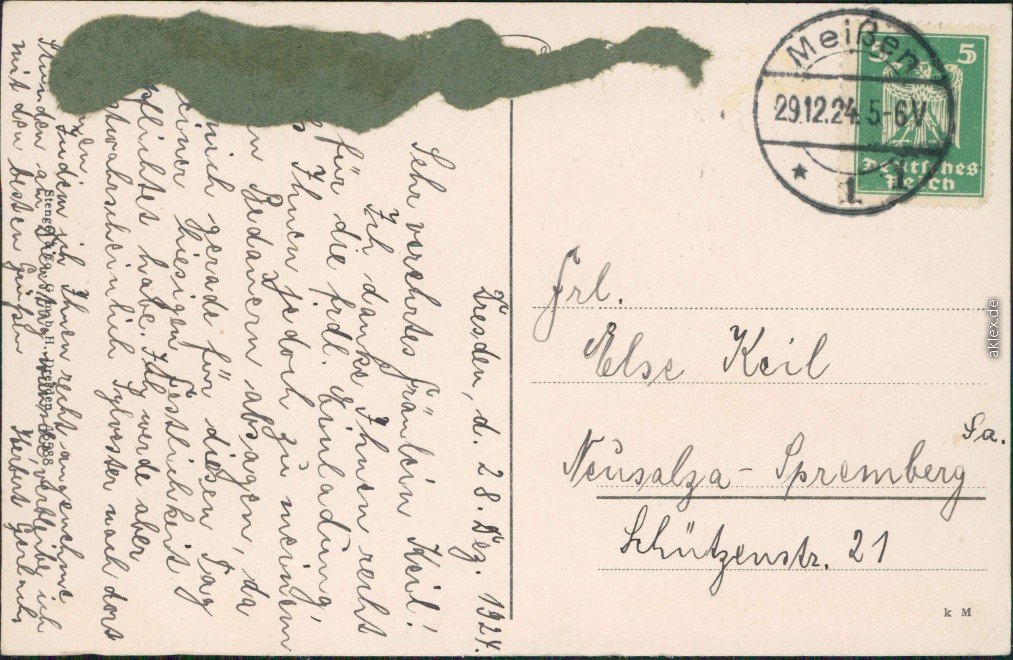 Dresden, d. 28. Dez. 1924.
Sehr verehrtes Fräulein Keil!
Ich danke Ihnen recht
für die frdl. Einladung,
Ihnen jedoch zu meinem
Bedauern absagen, da
mich gerade für diesen Tag
einer hiesigen Festlichkeit
pflichtet habe. Ich werde aber
wahrscheinlich Sylvester nach dort
Indem ich Ihnen recht angenehme
Stunden am verbleibe ich
mit den besten Grüßen
Herbert
Meißen
29.12.24. 5-6V
* 1. 1
5 5
Deutsches
Reich
Frl.
Else Keil
Neusalza-Spremberg
Sa.
Schützenstr. 21
k M
Dresden
aklex.de